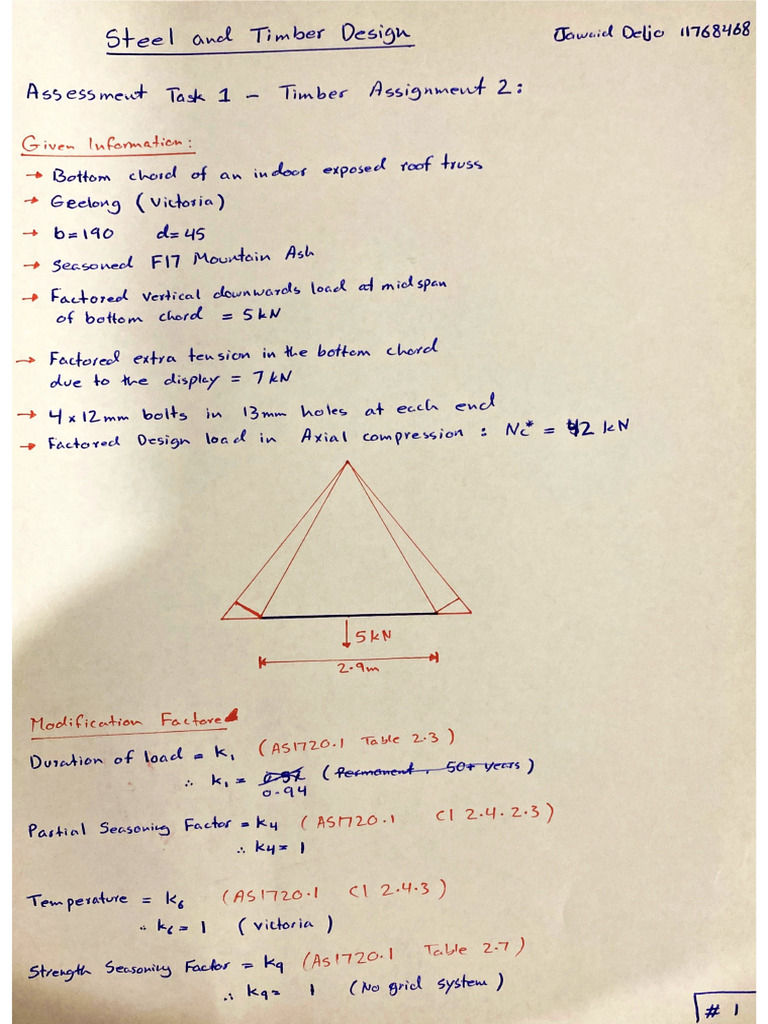 Steel and Timber Design
Jawaid Deljo 11768468
Assessment Task 1 - Timber Assignment 2:
Given Information:
→ Bottom chord of an indoor exposed roof truss
→ Geelong (Victoria)
→ b=190 d=45
→ Seasoned F17 Mountain Ash
→ Factored vertical downwards load at midspan
of bottom chord = 5kN
→ Factored extra tension in the bottom chord
due to the display = 7kN
→ 4 x 12mm bolts in 13mm holes at each end
→ Factored Design load in Axial compression : Nc* = 42 kN
5kN
2.9m
Modification Factore
Duration of load = k1 (AS1720.1 Table 2.3)
∴ k1 = 0.57 (Permanent, 50+ years)
0.94
Partial Seasoning Factor = k4 (AS1720.1 Cl 2.4.2.3)
∴ k4 = 1
Temperature = k6 (AS1720.1 Cl 2.4.3)
∴ k6 = 1 (Victoria)
Strength Seasoning Factor = k9 (AS1720.1 Table 2.7)
∴ k9 = 1 (No grid system)
# 1